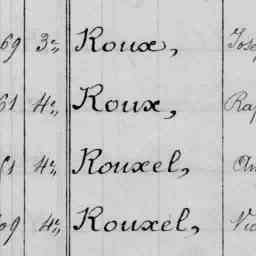 69 3e, Roux, José
61 4e, Roux, Rap
61 4e, Rouxel, An
09 4e, Rouxel, Vic